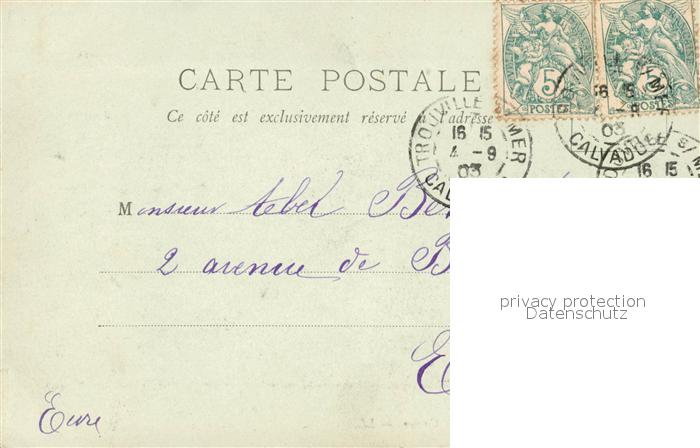 CARTE POSTALE
Ce côté est exclusivement réservé à l'adresse
5
POSTES
POSTES
TROUVILLE S/MER
16 15
4 -9
03
CALVADOS
16 15
03
CALVADOS
S/M
16 15
Monsieur Abel
2 avenue de B
E
Eure
privacy protection
Datenschutz